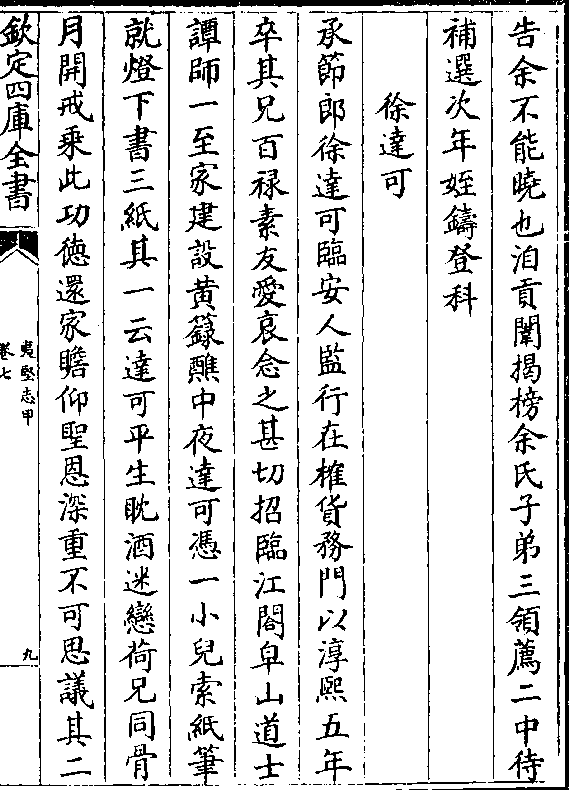 告余不能曉也洎貢闈揭榜余氏子弟三領薦二中待
補選次年姪鑄登科
徐達可
承節郎徐達可臨安人監行在榷貨務門以淳熙五年
卒其兄百禄素友愛哀念之甚切招臨江閤皁山道士
譚師一至家建設黄籙醮中夜達可憑一小兒索紙筆
就燈下書三紙其一云達可平生耽酒迷戀荷兄同骨
月開戒乗此功徳還家瞻仰聖恩深重不可思議其二
欽定四庫全書
夷堅志甲
卷七
九